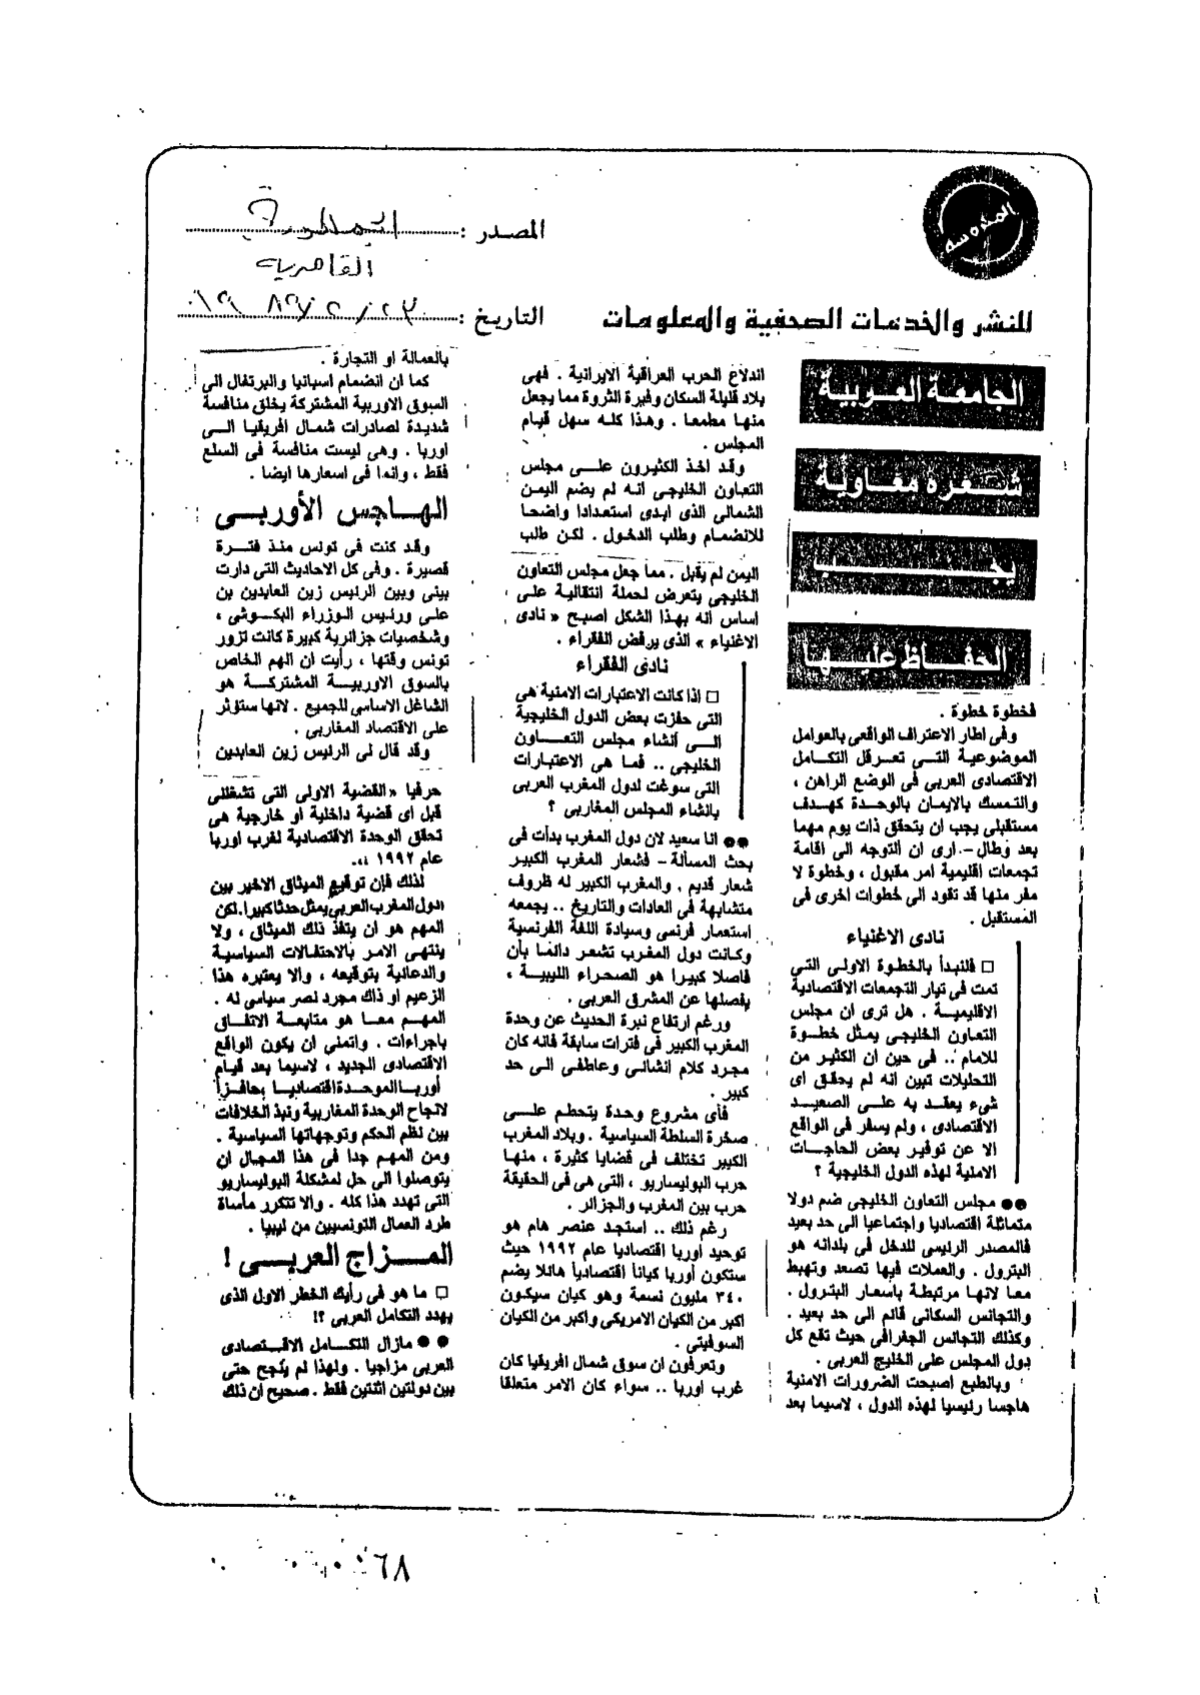 المدرسه
المصدر :
القاهرية
للنشر والخدمات الصحفية والمعلومات
التاريخ :
الجامعة العربية
شعرة معاوية
يجب
الحفاظ عليها
فخطوة خطوة .
وفى اطار الاعتراف الواقعى بالعوامل
الموضوعية التى تعرقل التكامل
الاقتصادى العربى فى الوضع الراهن ،
والتمسك بالايمان بالوحدة كهدف
مستقبلى يجب ان يتحقق ذات يوم مهما
بعد وطال - ارى ان التوجه الى اقامة
تجمعات اقليمية امر مقبول ، وخطوة لا
مفر منها قد تقود الى خطوات اخرى فى
المستقبل .
نادى الاغنياء
□ فلنبدأ بالخطوة الاولى التى
تمت فى تيار التجمعات الاقتصادية
الاقليمية . هل ترى ان مجلس
التعاون الخليجى يمثل خطوة
للامام .. فى حين ان الكثير من
التحليلات تبين انه لم يحقق اى
شىء يعتد به على الصعيد
الاقتصادى ، ولم يسفر فى الواقع
الا عن توفير بعض الحاجات
الامنية لهذه الدول الخليجية ؟
●● مجلس التعاون الخليجى ضم دولا
متماثلة اقتصاديا واجتماعيا الى حد بعيد
فالمصدر الرئيسى للدخل فى بلدانه هو
البترول . والعملات فيها تصعد وتهبط
معا لانها مرتبطة باسعار البترول .
والتجانس السكانى قائم الى حد بعيد .
وكذلك التجانس الجغرافى حيث تقع كل
دول المجلس على الخليج العربى .
وبالطبع اصبحت الضرورات الامنية
هاجسا رئيسيا لهذه الدول ، لاسيما بعد
اندلاع الحرب العراقية الايرانية . فهى
بلاد قليلة السكان وفيرة الثروة مما يجعل
منها مطمعا . وهذا كله سهل قيام
المجلس .
وقد اخذ الكثيرون على مجلس
التعاون الخليجى انه لم يضم اليمن
الشمالى الذى ابدى استعدادا واضحا
للانضمام وطلب الدخول . لكن طلب
اليمن لم يقبل . مما جعل مجلس التعاون
الخليجى يتعرض لحملة انتقالية على
اساس انه بهذا الشكل اصبح « نادى
الاغنياء » الذى يرفض الفقراء .
نادى الفقراء
□ اذا كانت الاعتبارات الامنية هى
التى حفزت بعض الدول الخليجية
الى أنشاء مجلس التعاون
الخليجى .. فما هى الاعتبارات
التى سوغت لدول المغرب العربى
بانشاء المجلس المغاربى ؟
●● انا سعيد لان دول المغرب بدأت فى
بحث المسألة - فشعار المغرب الكبير
شعار قديم . والمغرب الكبير له ظروف
متشابهة فى العادات والتاريخ .. يجمعه
استعمار فرنسى وسيادة اللغة الفرنسية
وكانت دول المغرب تشعر دائما بأن
فاصلا كبيرا هو الصحراء الليبية ،
يفصلها عن المشرق العربى .
ورغم ارتفاع نبرة الحديث عن وحدة
المغرب الكبير فى فترات سابقة فانه كان
مجرد كلام انشائى وعاطفى الى حد
كبير .
فأى مشروع وحدة يتحطم على
صخرة السلطة السياسية . وبلاد المغرب
الكبير تختلف فى قضايا كثيرة ، منها
حرب البوليساريو ، التى هى فى الحقيقة
حرب بين المغرب والجزائر .
رغم ذلك .. استجد عنصر هام هو
توحيد أوربا اقتصاديا عام ١٩٩٢ حيث
ستكون أوربا كيانا اقتصاديا هائلا يضم
٣٤٠ مليون نسمة وهو كيان سيكون
اكبر من الكيان الامريكى واكبر من الكيان
السوفيتى .
وتعرفون ان سوق شمال افريقيا كان
غرب اوربا .. سواء كان الامر متعلقا
بالعمالة او التجارة .
كما ان انضمام اسبانيا والبرتغال الى
السوق الاوربية المشتركة يخلق منافسة
شديدة لصادرات شمال افريقيا الى
اوربا . وهى ليست منافسة فى السلع
فقط ، وانما فى اسعارها ايضا .
الهاجس الأوربى
وقد كنت فى تونس منذ فترة
قصيرة . وفى كل الاحاديث التى دارت
بينى وبين الرئيس زين العابدين بن
على ورئيس الوزراء البكوشى ،
وشخصيات جزائرية كبيرة كانت تزور
تونس وقتها ، رأيت ان الهم الخاص
بالسوق الاوربية المشتركة هو
الشاغل الاساسى للجميع . لانها ستؤثر
على الاقتصاد المغاربى .
وقد قال لى الرئيس زين العابدين
حرفيا « القضية الاولى التى تشغلنى
قبل اى قضية داخلية او خارجية هى
تحقق الوحدة الاقتصادية لغرب اوربا
عام ١٩٩٢ ».
لذلك فإن توقيع الميثاق الاخير بين
دول المغرب العربى يمثل حدثا كبيرا. لكن
المهم هو أن ينفذ ذلك الميثاق ، ولا
ينتهى الامر بالاحتفالات السياسية
والدعائية بتوقيعه ، والا يعتبره هذا
الزعيم او ذاك مجرد نصر سياسى له .
المهم معا هو متابعة الاتفاق
باجراءات . واتمنى ان يكون الواقع
الاقتصادى الجديد ، لاسيما بعد قيام
أوربا الموحدة اقتصاديا حافزا
لانجاح الوحدة المغاربية ونبذ الخلافات
بين نظم الحكم وتوجهاتها السياسية .
ومن المهم جدا فى هذا المجال ان
يتوصلوا الى حل لمشكلة البوليساريو
التى تهدد هذا كله . والا تتكرر مأساة
طرد العمال التونسيين من ليبيا .
المزاج العربى !
□ ما هو فى رأيك الخطر الاول الذى
يهدد التكامل العربى ؟!
●● مازال التكامل الاقتصادى
العربى مزاجيا . ولهذا لم ينجح حتى
بين دولتين اثنتين فقط . صحيح ان ذلك